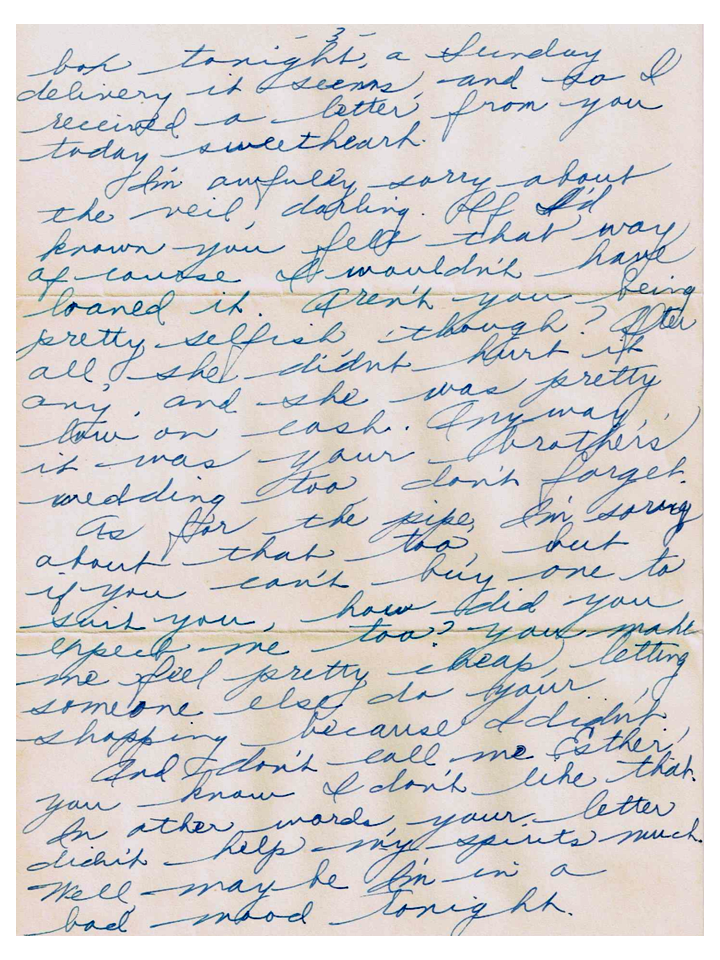 - 3 -
box tonight, a Sunday
delivery it seems, and so I
received a letter from you
today sweetheart.
I'm awfully sorry about
the veil, darling. If I'd
known you felt that way
of course I wouldn't have
loaned it. Aren't you being
pretty selfish though? After
all she didn't hurt it
any, and she was pretty
low on cash. Anyway,
it was your brother's
wedding too don't forget.
As for the pipe, I'm sorry
about that too, but
if you can't buy one to
suit you, how did you
expect me too? You make
me feel pretty cheap, letting
someone else do your
shopping because I didn't,
And I don't call me Esther,
you know I don't like that.
In other words, your letter
didn't help my spirits much.
Well, may be I'm in a
bad mood tonight.